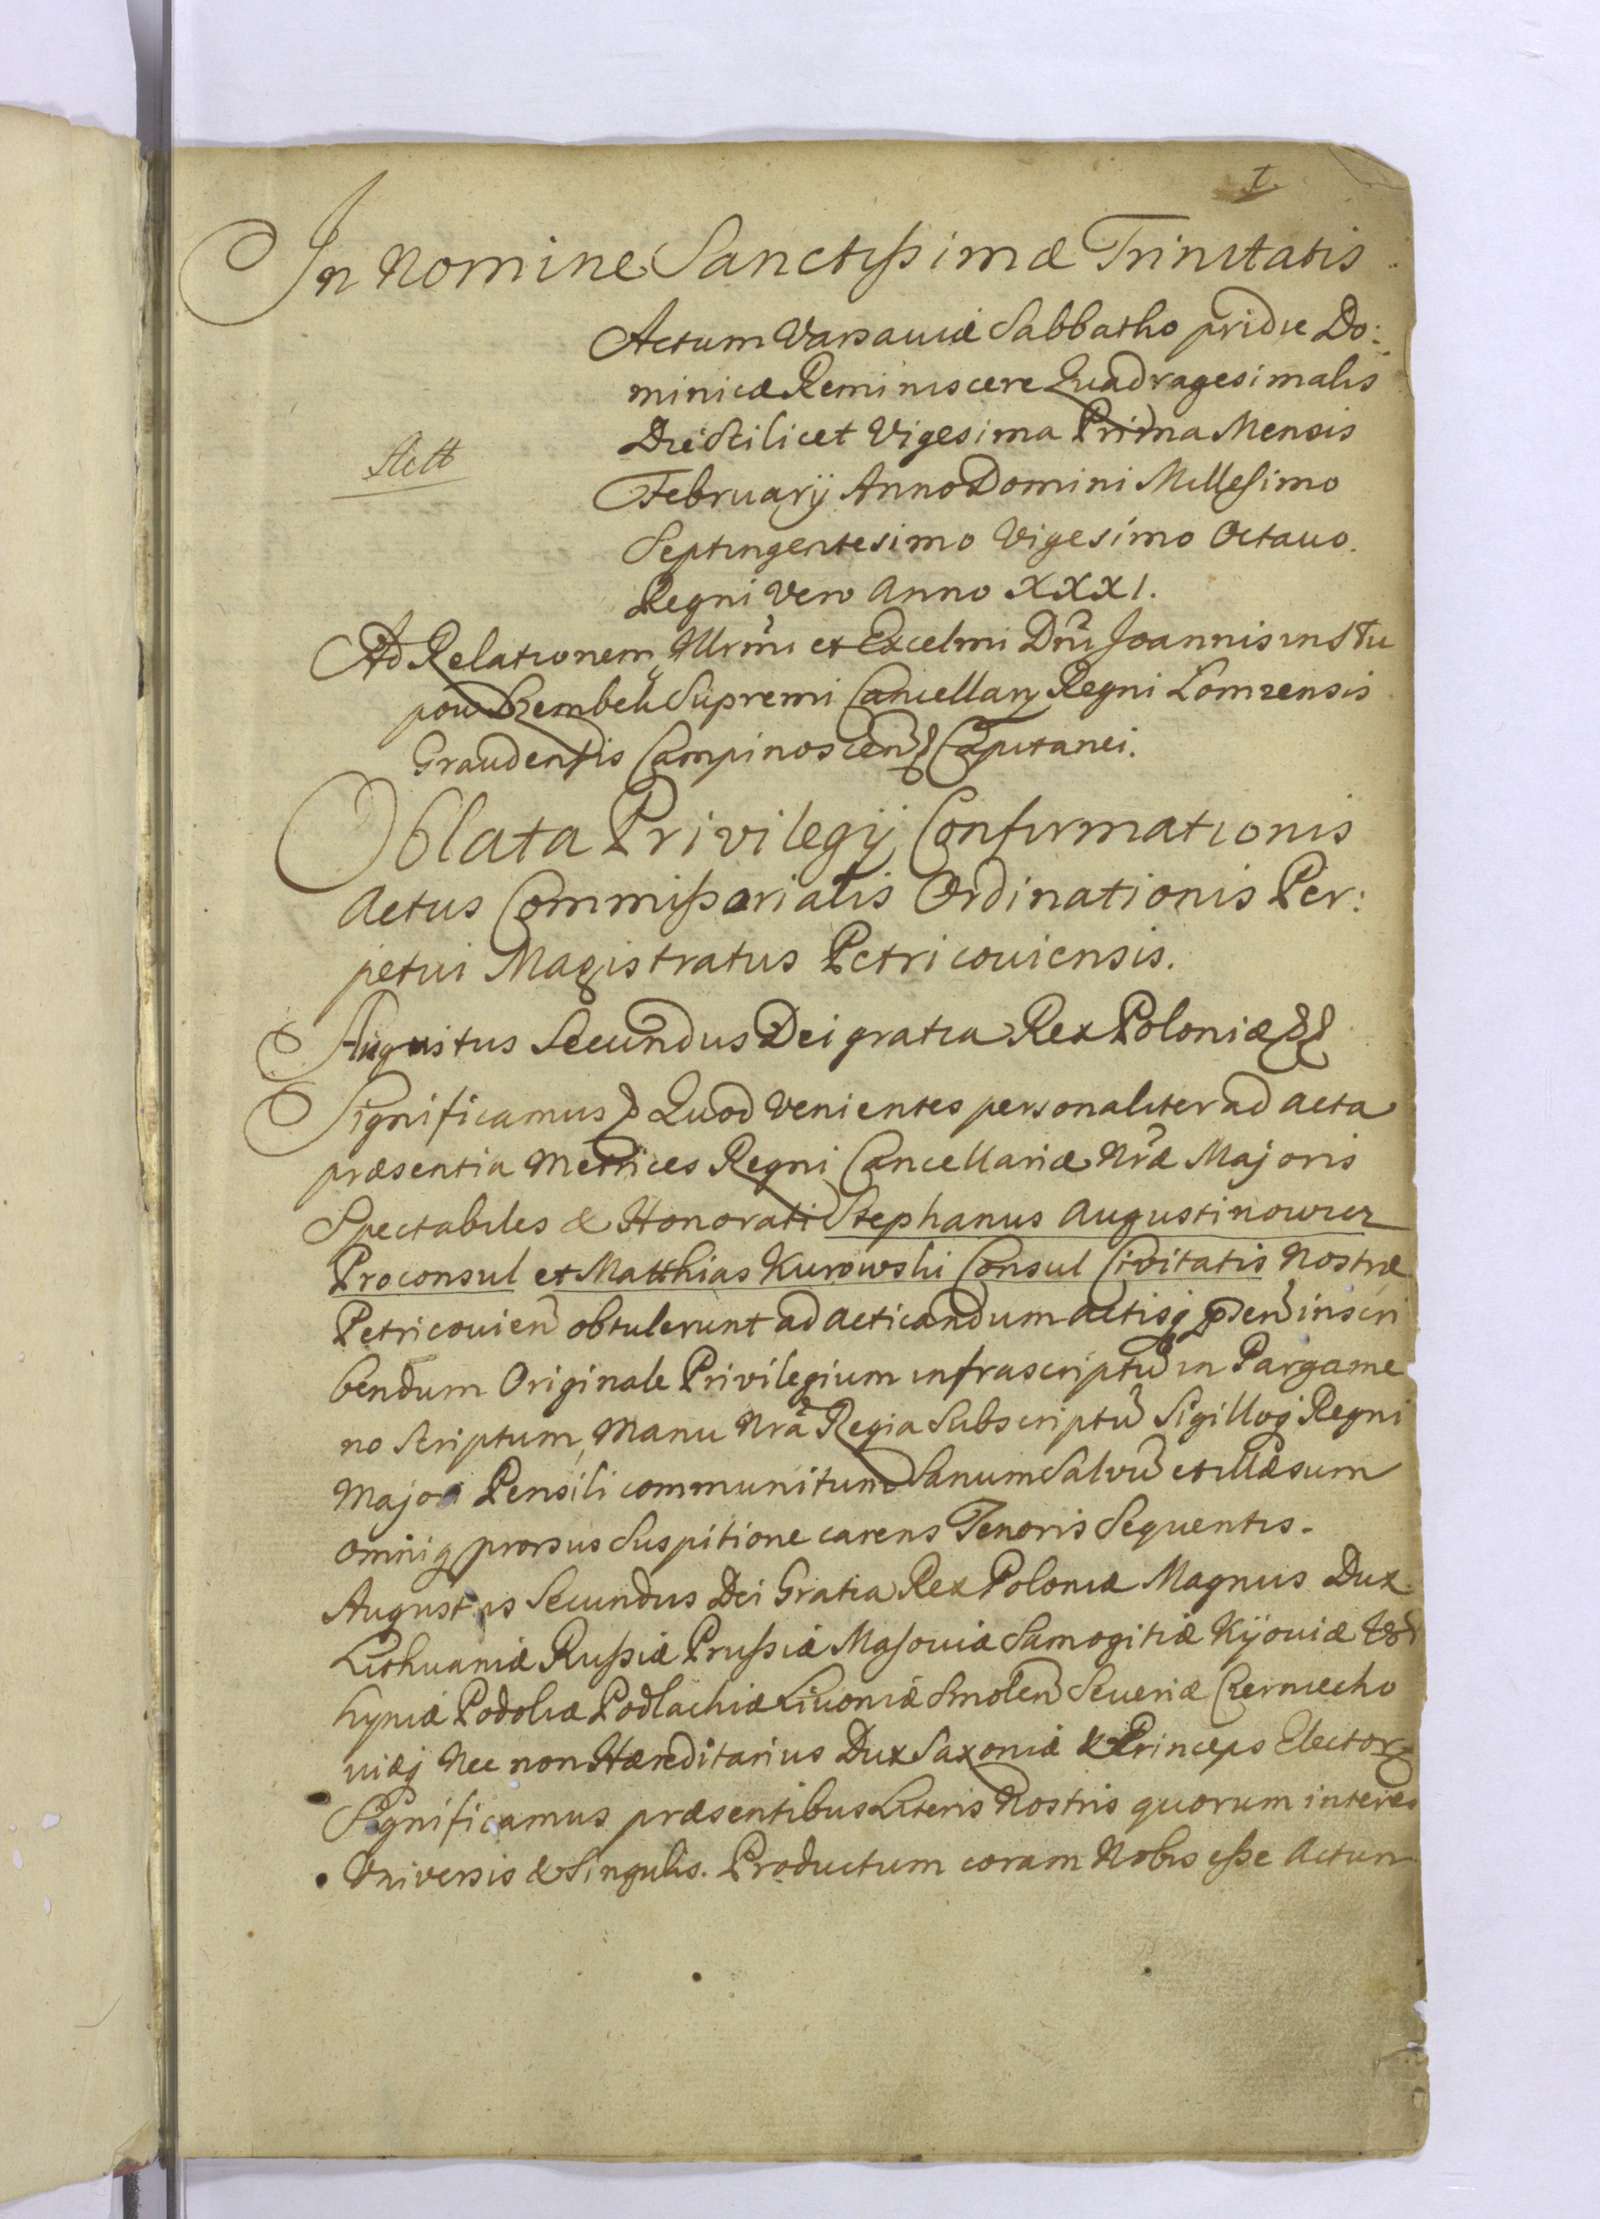 1.
In Nomine Sanctissimæ Trinitatis
Actum Varsaviæ Sabbatho pridie Do:
minicæ Reminiscere Quadragesimalis
Die Scilicet Vigesima Prima Mensis
Februarij Anno Domini Millesimo
Septingentesimo Vigesimo Octavo.
Regni Vero Anno XXXI.
Ad Relationem Illrmi et Excelmi Dni Joannis in Stu
pow Szembek Supremi Cancellarij Regni Lomzensis
Graudentis Campinoscen Capitanei.
Oblata Privilegij Confirmationis
Actus Commissorialis Ordinationis Per:
petui Magistratus Petricoviensis.
Augustus Secundus Dei gratia Rex Poloniæ
Significamus Quod Venientes personaliter ad acta
præsentia Metrices Regni Cancellariæ Nræ Majoris
Spectabiles & Honorati Stephanus Augustinowicz
Proconsul et Matthias Kurowski Consul Civitatis Nostræ
Petricovien obtulerunt ad acticandum actisq psen inscri
bendum Originale Privilegium infrascriptu in Pargame
no Scriptum, Manu Nra Regia Subscriptu Sigilloq Regni
Majori Pensili communitum Sanum Salvu et illæsum
omniq prorsus Suspitione carens Tenoris Sequentis.
Augustus Secundus Dei Gratia Rex Poloniæ Magnus Dux
Lithuaniæ Russiæ Prussiæ Masoviæ Samogitiæ Kijoviæ Vo
hyniæ Podoliæ Podlachiæ Livoniæ Smolen Severiæ Czerniecho
viæq Nec non Hæreditarius Dux Saxoniæ & Princeps Elector
Significamus præsentibus Literis Nostris quorum interes
Universis & Singulis. Productum coram Nobis esse Actum